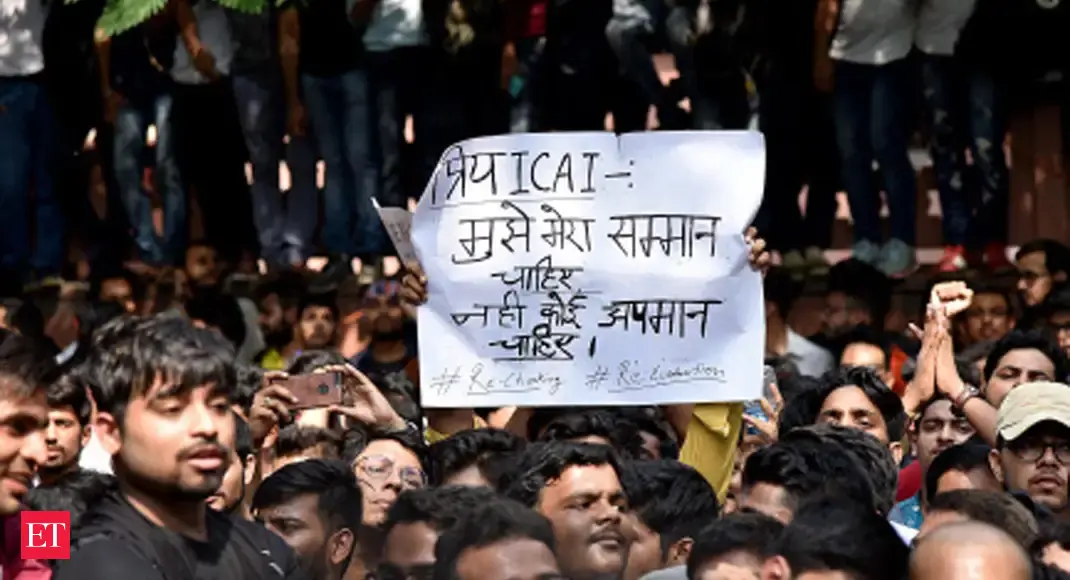 प्रिय ICAI -:
मुझे मेरा सम्मान
चाहिए
नही कोई अपमान
चाहिए।
# Re-Checking # Re-Evaluation
ET